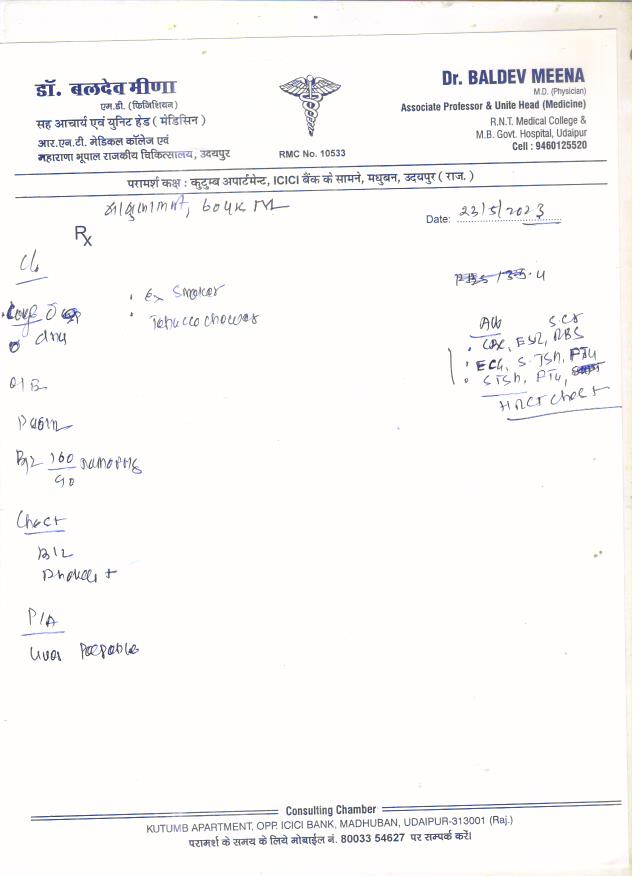 डॉ. बलदेव मीणा
एम.डी. (फिजिशियन)
सह आचार्य एवं युनिट हेड ( मेडिसिन )
आर.एन.टी. मेडिकल कॉलेज एवं
महाराणा भूपाल राजकीय चिकित्सालय, उदयपुर
RMC No. 10533
Dr. BALDEV MEENA
M.D. (Physician)
Associate Professor & Unite Head (Medicine)
R.N.T. Medical College &
M.B. Govt. Hospital, Udaipur
Cell : 9460125520
परामर्श कक्ष : कुटुम्ब अपार्टमेन्ट, ICICI बैंक के सामने, मधुबन, उदयपुर ( राज. )
60
Date: 23/5/2023
Rx
C/o
• Ex Smoker
• Tobacco chewer
Adv
• CBC, ESR, RBS
• ECG, S. TSH,
• S TSH,
HRCT Chest
O/E
160
90
mmHg
Chest
B/L
P/A
Liver Palpable
Consulting Chamber
KUTUMB APARTMENT, OPP. ICICI BANK, MADHUBAN, UDAIPUR-313001 (Raj.)
परामर्श के समय के लिये मोबाईल नं. 80033 54627 पर सम्पर्क करें।